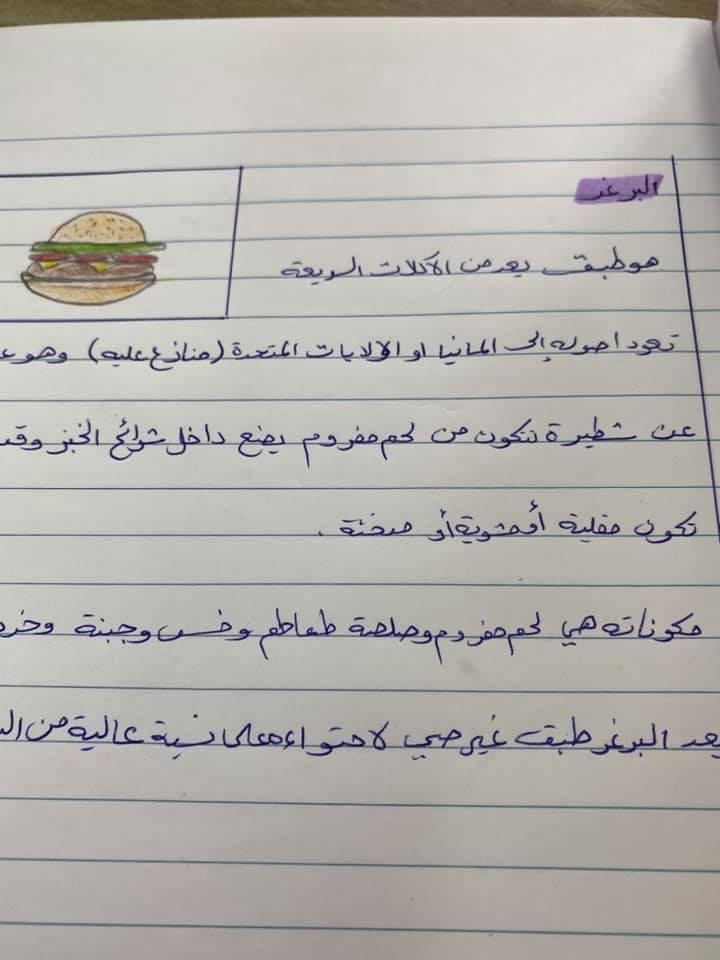 البرغر
هو طبق يعد من الأكلات السريعة
تعود اصوله إلى المانيا او الولايات المتحدة (متنازع عليه) وهو
عن شطيرة تتكون من لحم مفروم يضع داخل شرائح الخبز وقد
تكون مقلية أو مشوية أو مدخنة .
مكوناته هي لحم مفروم وصلصة طماطم وخس وجبنة
يعد البرغر طبق غير صحي لاحتواءه على نسبة عالية من